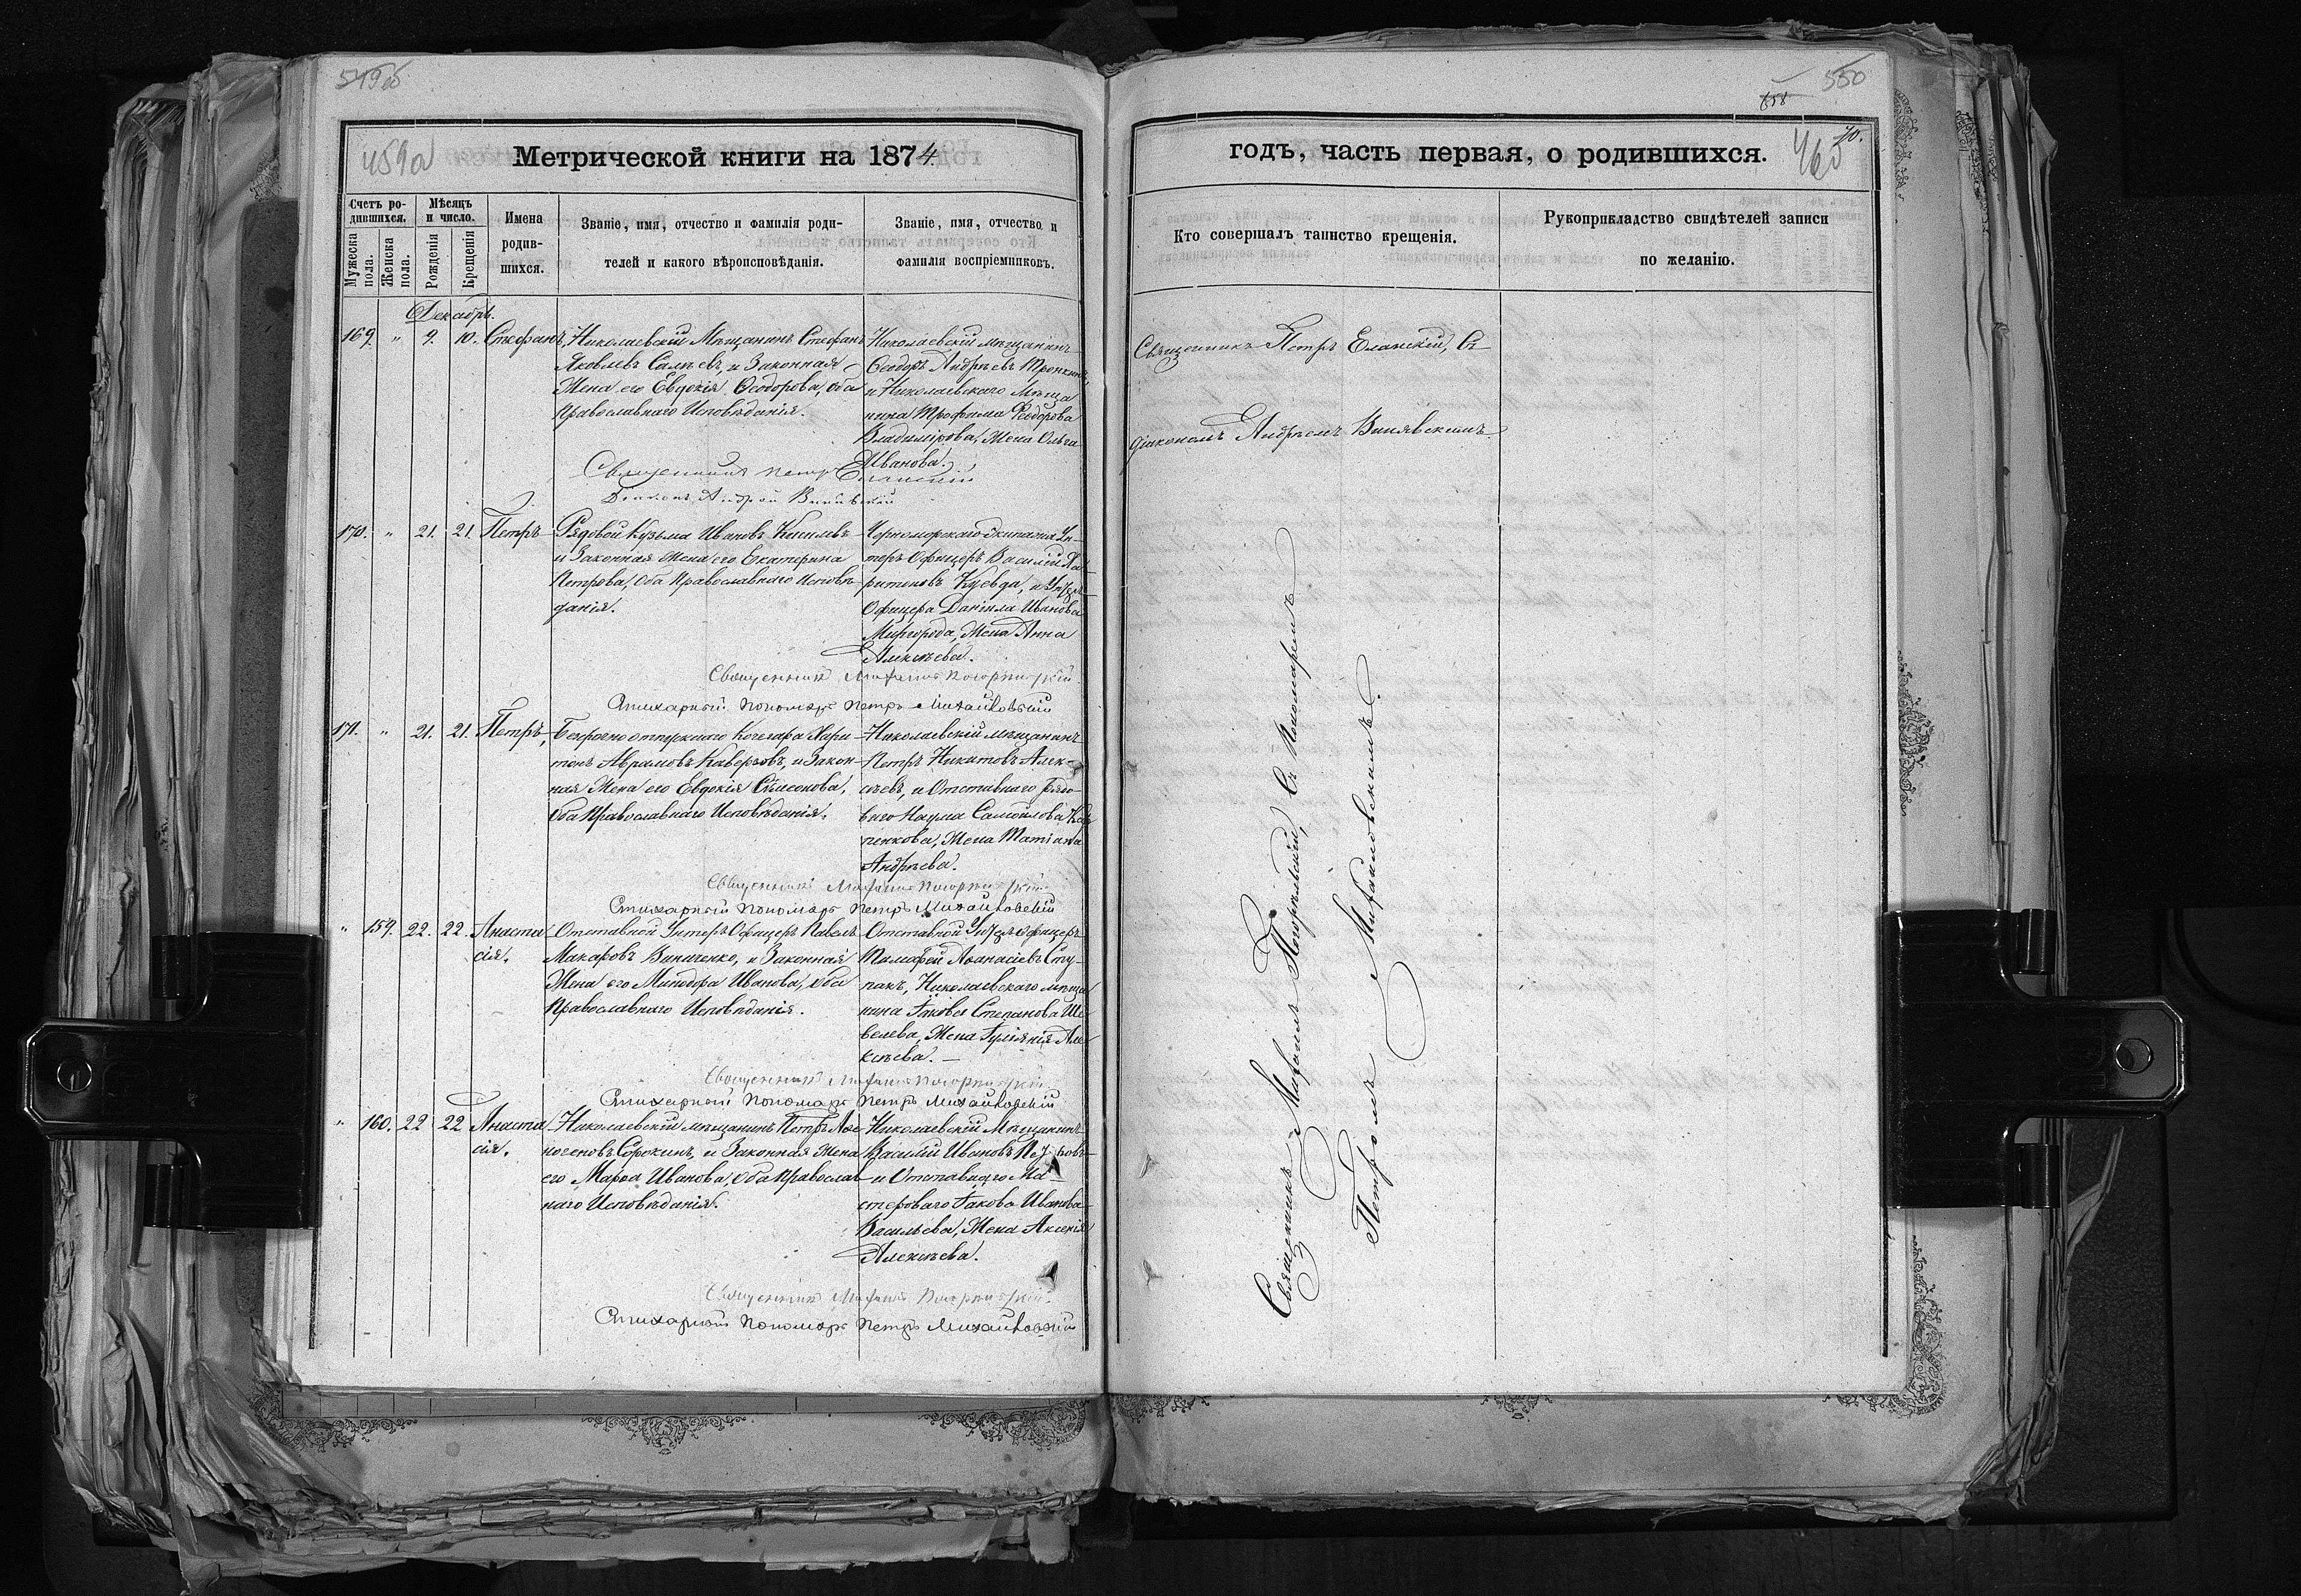 549об
Метрической книги на 1874
459об
Счетъ ро-
дившихся.
Мужеска пола.
Женска пола.
Мѣсяцъ
и число.
Рожденія
Крещенія
Имена
родив-
шихся.
Званіе, имя, отчество и фамилія роди-
телей и какого вѣроисповѣданія.
Званіе, имя, отчество и
фамилія воспріемниковъ.
Декабрь.
169. " 9. 10. Стефанъ,
Николаевскій Мѣщанинъ Стефанъ
Яковлевъ и Законная
Жена его Евдокія Ѳеодорова, оба
Православнаго Исповѣданія.
Николаевскій мѣщанинъ
Ѳеодоръ Андрѣевъ
и Николаевскаго Мѣща
нина Трофима Ѳеодорова
Владимірова, Жена Ольга
Иванова.
Священникъ Петръ Еланскій
Діаконъ Андрей
170. " 21. 21. Петръ
Рядовой Кузьма Ивановъ
и Законная Жена его Екатерина
Петрова, Оба Православнаго Исповѣ-
данія.
Черноморскаго Экипажа Ун-
теръ Офицеръ Василій Ха-
ритоновъ и Унтеръ
Офицера Даніила Иванова
Миргорода, Жена Анна
Алексѣева.
Священникъ
Стихарный Пономарь Петръ Михайловскій
171. " 21. 21. Петръ,
Безсрочноотпускнаго Кочегара Хари-
тонъ Аврамовъ и Закон-
ная Жена его Евдокія Симеонова,
Оба Православнаго Исповѣданія.
Николаевскій мѣщанинъ
Петръ Никитовъ Алек-
сѣевъ, и Отставнаго Рядо-
ваго Наума Самойлова
Жена Татіана
Андрѣева.
Священникъ
Стихарный Пономарь Петръ Михайловскій
" 159. 22. 22. Анаста
сія.
Отставной Унтеръ Офицеръ Павелъ
Макаровъ Винниченко, и Законная
Жена его Минодора Иванова, оба
Православнаго Исповѣданія.
Отставной Унтеръ Офицеръ
Аѳанасіевъ Сту-
пакъ, Николаевскаго мѣща
нина Іакова Степанова Ше
велева, Жена Іуліанія Але
ксѣева.
Священникъ
Стихарный Пономарь Петръ Михайловскій
" 160. 22 22 Анаста
сія.
Николаевскій мѣщанинъ Петръ
Сорокинъ, и Законная Жена
его Марѳа Иванова, Оба Православ
наго Исповѣданія.
Николаевскій Мѣщанинъ
Василій Ивановъ
и Отставнаго Ма-
стероваго Іакова Иванова
Васильева, Жена Аксенія
Алексѣева.
Священникъ
Стихарный Пономарь Петръ Михайловскій
550
годъ, часть первая, о родившихся.
460
70.
Кто совершалъ таинство крещенія.
Рукоприкладство свидѣтелей записи
по желанію.
Священникъ Петръ Еланскій, Съ
діакономъ Андреемъ
Священникъ Погорѣльскій, Съ Пономаремъ
Петромъ Михайловскимъ.